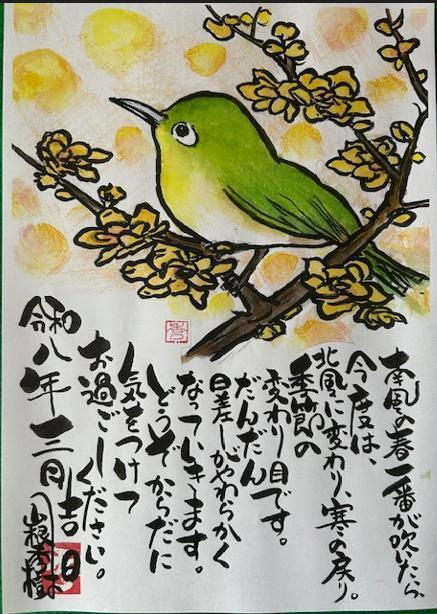 南風の春一番が吹いたら
今度は、
北風に変わり、寒の戻り。
季節の
変わり目です。
だんだん
日差しがやわらかく
なっていきます。
どうぞからだに
気をつけて
お過ごしください。
令和八年三月吉日
山根秀樹